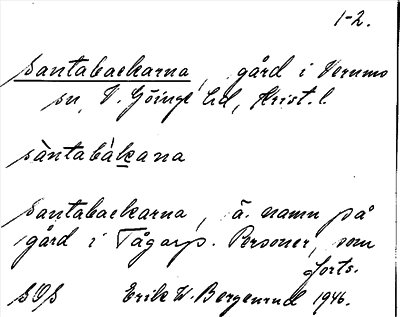 1-2.
Santabackarna, gård i Verum
sn, V. Göinge hd, Krist. l.
sàntabákana
Santabackarna, ä. namn på
gård i Tågarp. Personer, som
forts.
SOS Erik W. Bergenrud 1946.